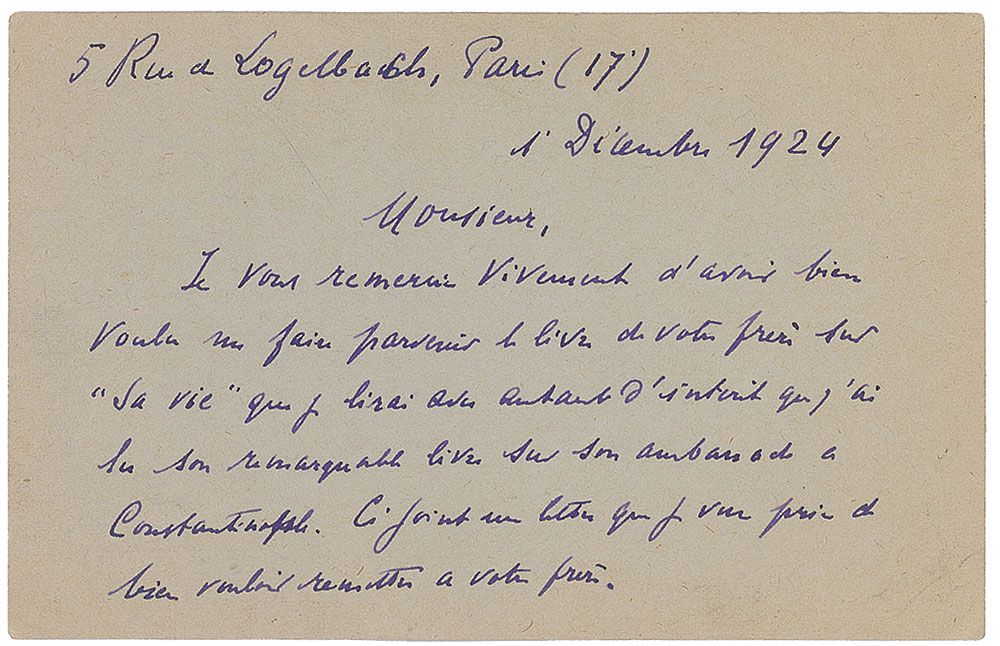 5 Rue de Logelbach, Paris (17e)
1er Décembre 1924
Monsieur,
Je vous remercie vivement d'avoir bien
voulu me faire parvenir le livre de votre frère sur
"Sa vie" que je lirai avec autant d'intérêt que j'ai
lu son remarquable livre sur son ambassade a
Constantinople. Ci joint une lettre que je vous prie de
bien vouloir remettre a votre frère.